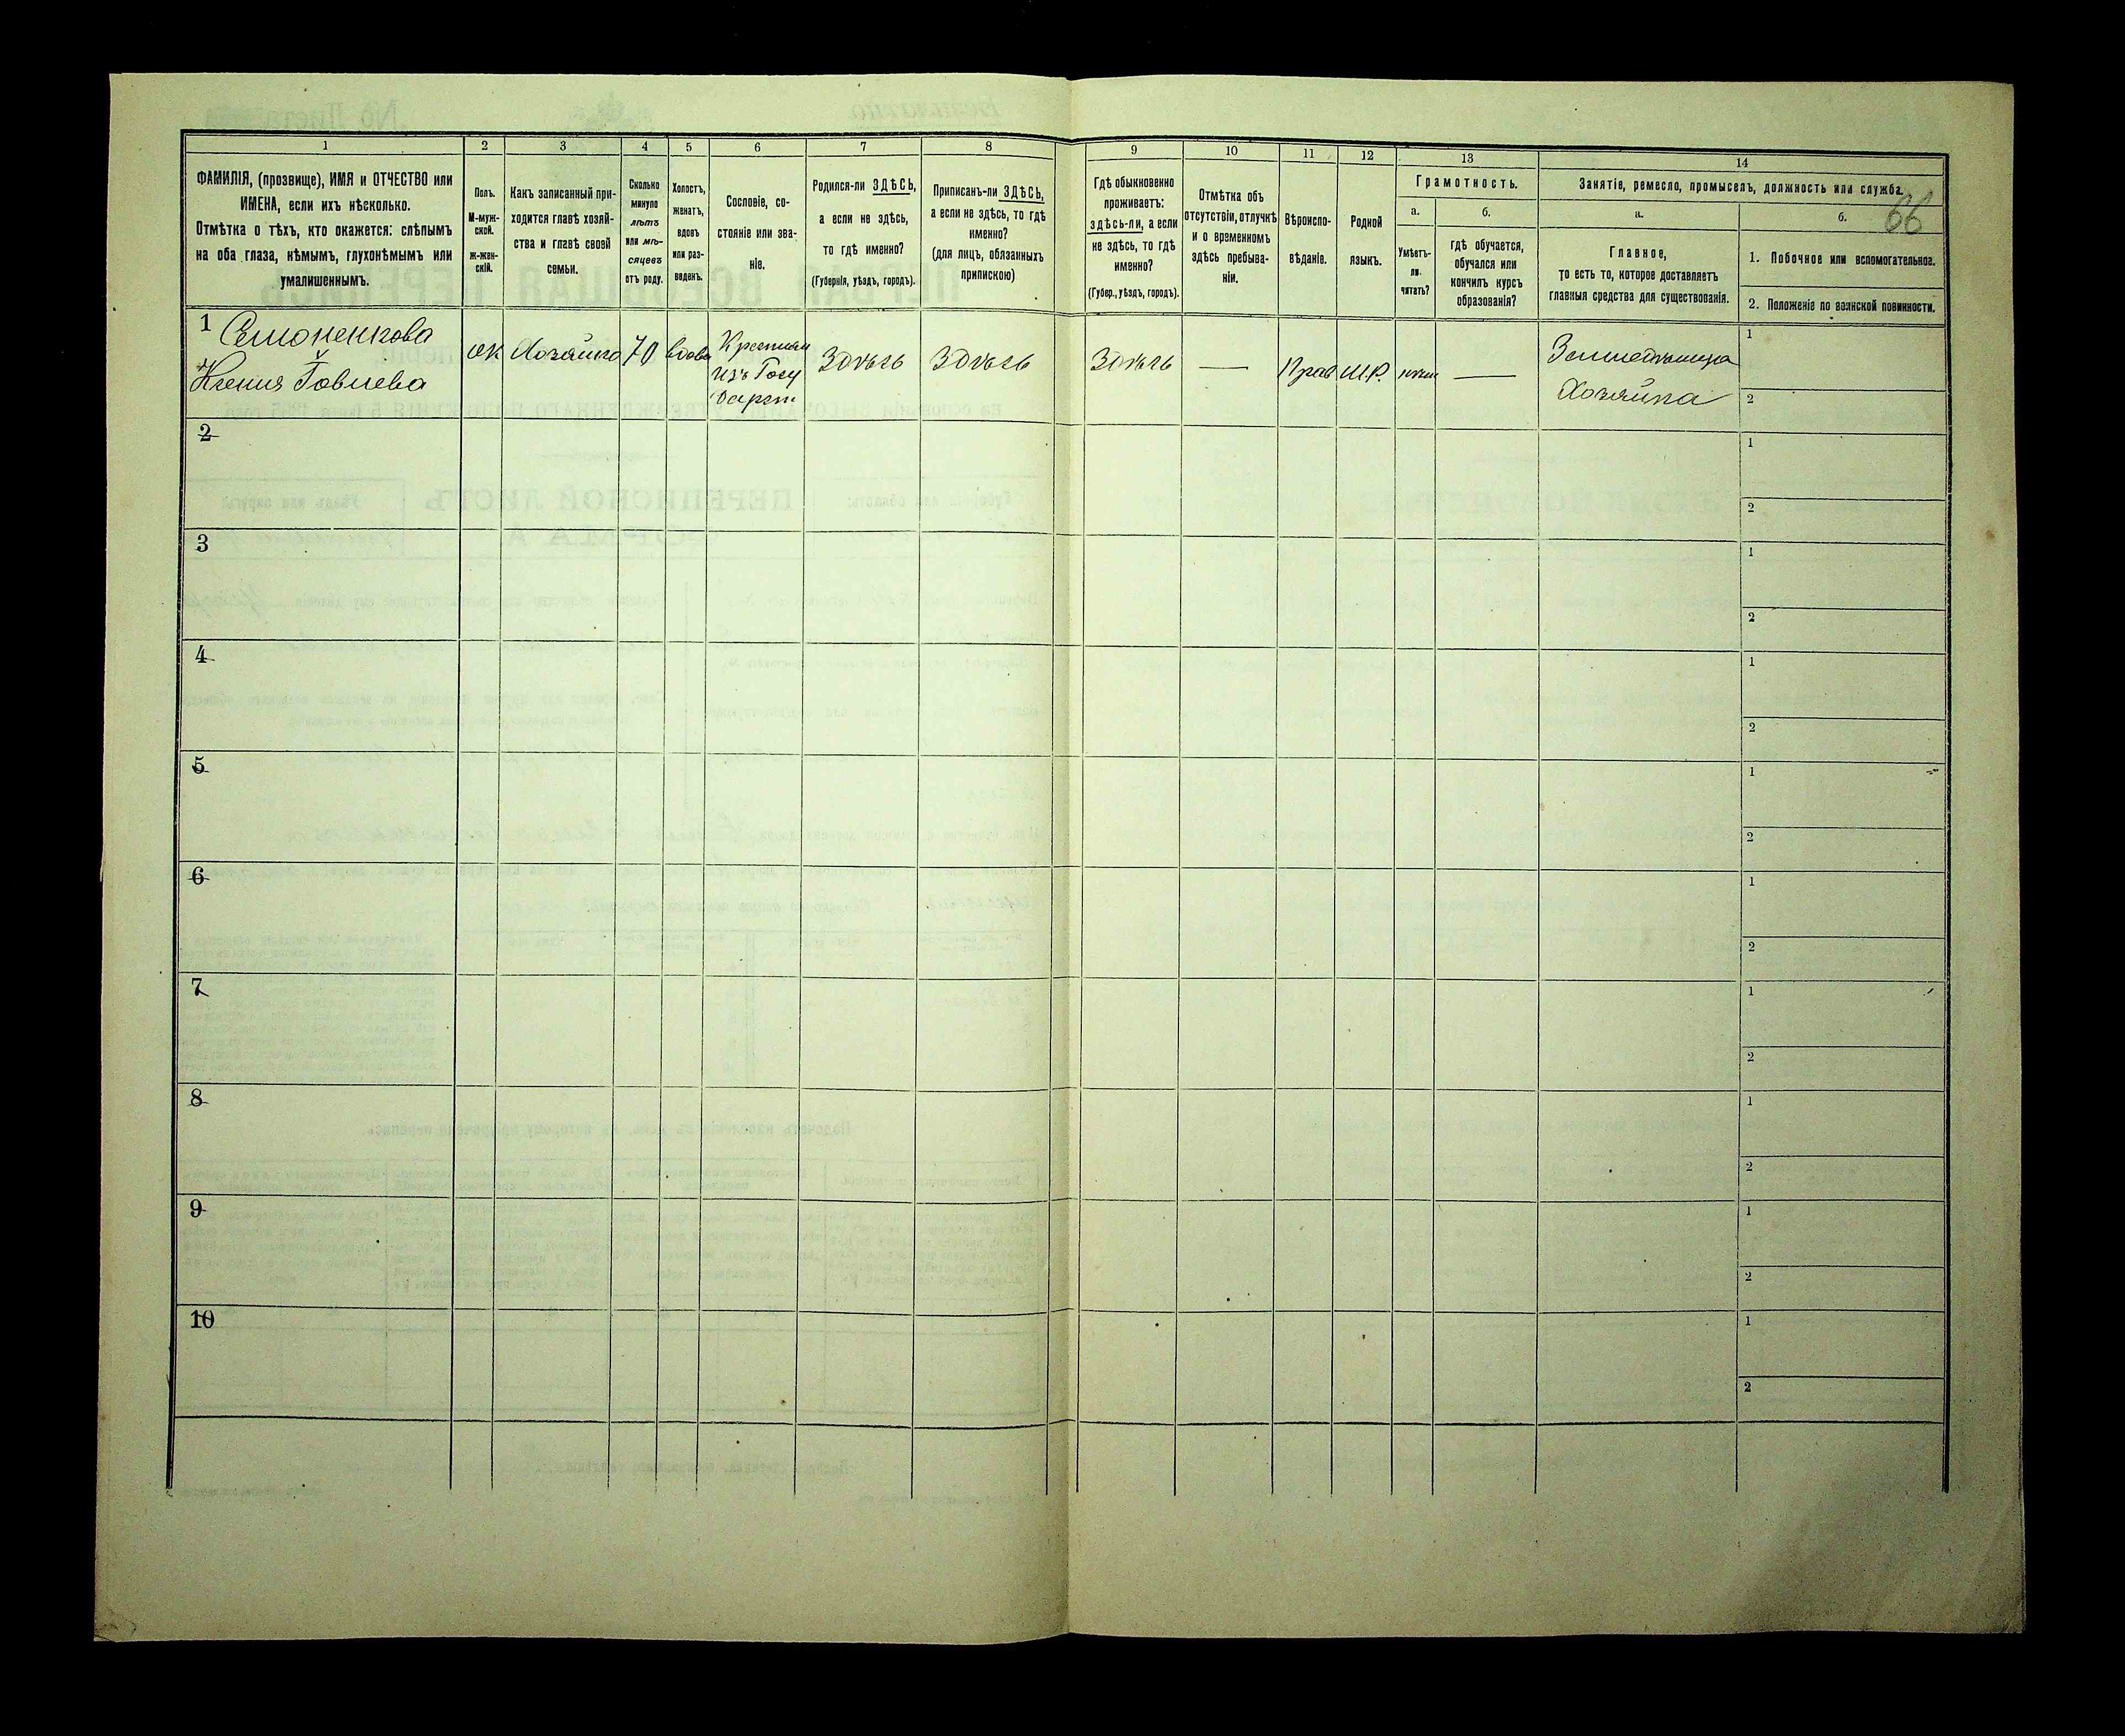 66
1
ФАМИЛІЯ, (прозвище), ИМЯ и ОТЧЕСТВО или
ИМЕНА, если ихъ нѣсколько.
Отмѣтка о тѣхъ, кто окажется: слѣпымъ
на оба глаза, нѣмымъ, глухонѣмымъ или
умалишеннымъ.
2
Полъ.
М-муж-
ской.
ж-жен-
скій.
3
Какъ записанный при-
ходится главѣ хозяй-
ства и главѣ своей
семьи.
4
Сколько
минуло
лѣтъ
или мѣ-
сяцевъ
отъ роду.
5
Холостъ,
женатъ,
вдовъ
или раз-
веденъ.
6
Сословіе, со-
стояніе или зва-
ніе.
7
Родился-ли ЗДѢСЬ,
а если не здѣсь,
то гдѣ именно?
(Губернія, уѣздъ, городъ).
8
Приписанъ-ли ЗДѢСЬ,
а если не здѣсь, то гдѣ
именно?
(для лицъ, обязанныхъ
припискою)
9
Гдѣ обыкновенно
проживаетъ:
здѣсь-ли, а если
не здѣсь, то гдѣ
именно?
(Губер., уѣздъ, городъ).
10
Отмѣтка объ
отсутствіи, отлучкѣ
и о временномъ
здѣсь пребыва-
ніи.
11
Вѣроиспо-
вѣданіе.
12
Родной
языкъ.
13
Грамотность.
а.
Умѣетъ-
ли
читать?
б.
гдѣ обучается,
обучался или
кончилъ курсъ
образованія?
14
Занятіе, ремесло, промыселъ, должность или служба.
а.
Главное,
то есть то, которое доставляетъ
главныя средства для существованія.
б.
1. Побочное или вспомогательное.
2. Положеніе по воинской повинности.
1
Симоненкова
Ксения
ж
Хозяйка
70
вдова
Крестьян
изъ Госу
дарст
Здѣсь
Здѣсь
Здѣсь
—
Прав
М.Р.
нѣт
—
Хозяйка
1
2
2
1
2
3
1
2
4
1
2
5
1
2
6
1
2
7
1
2
8
1
2
9
1
2
10
1
2